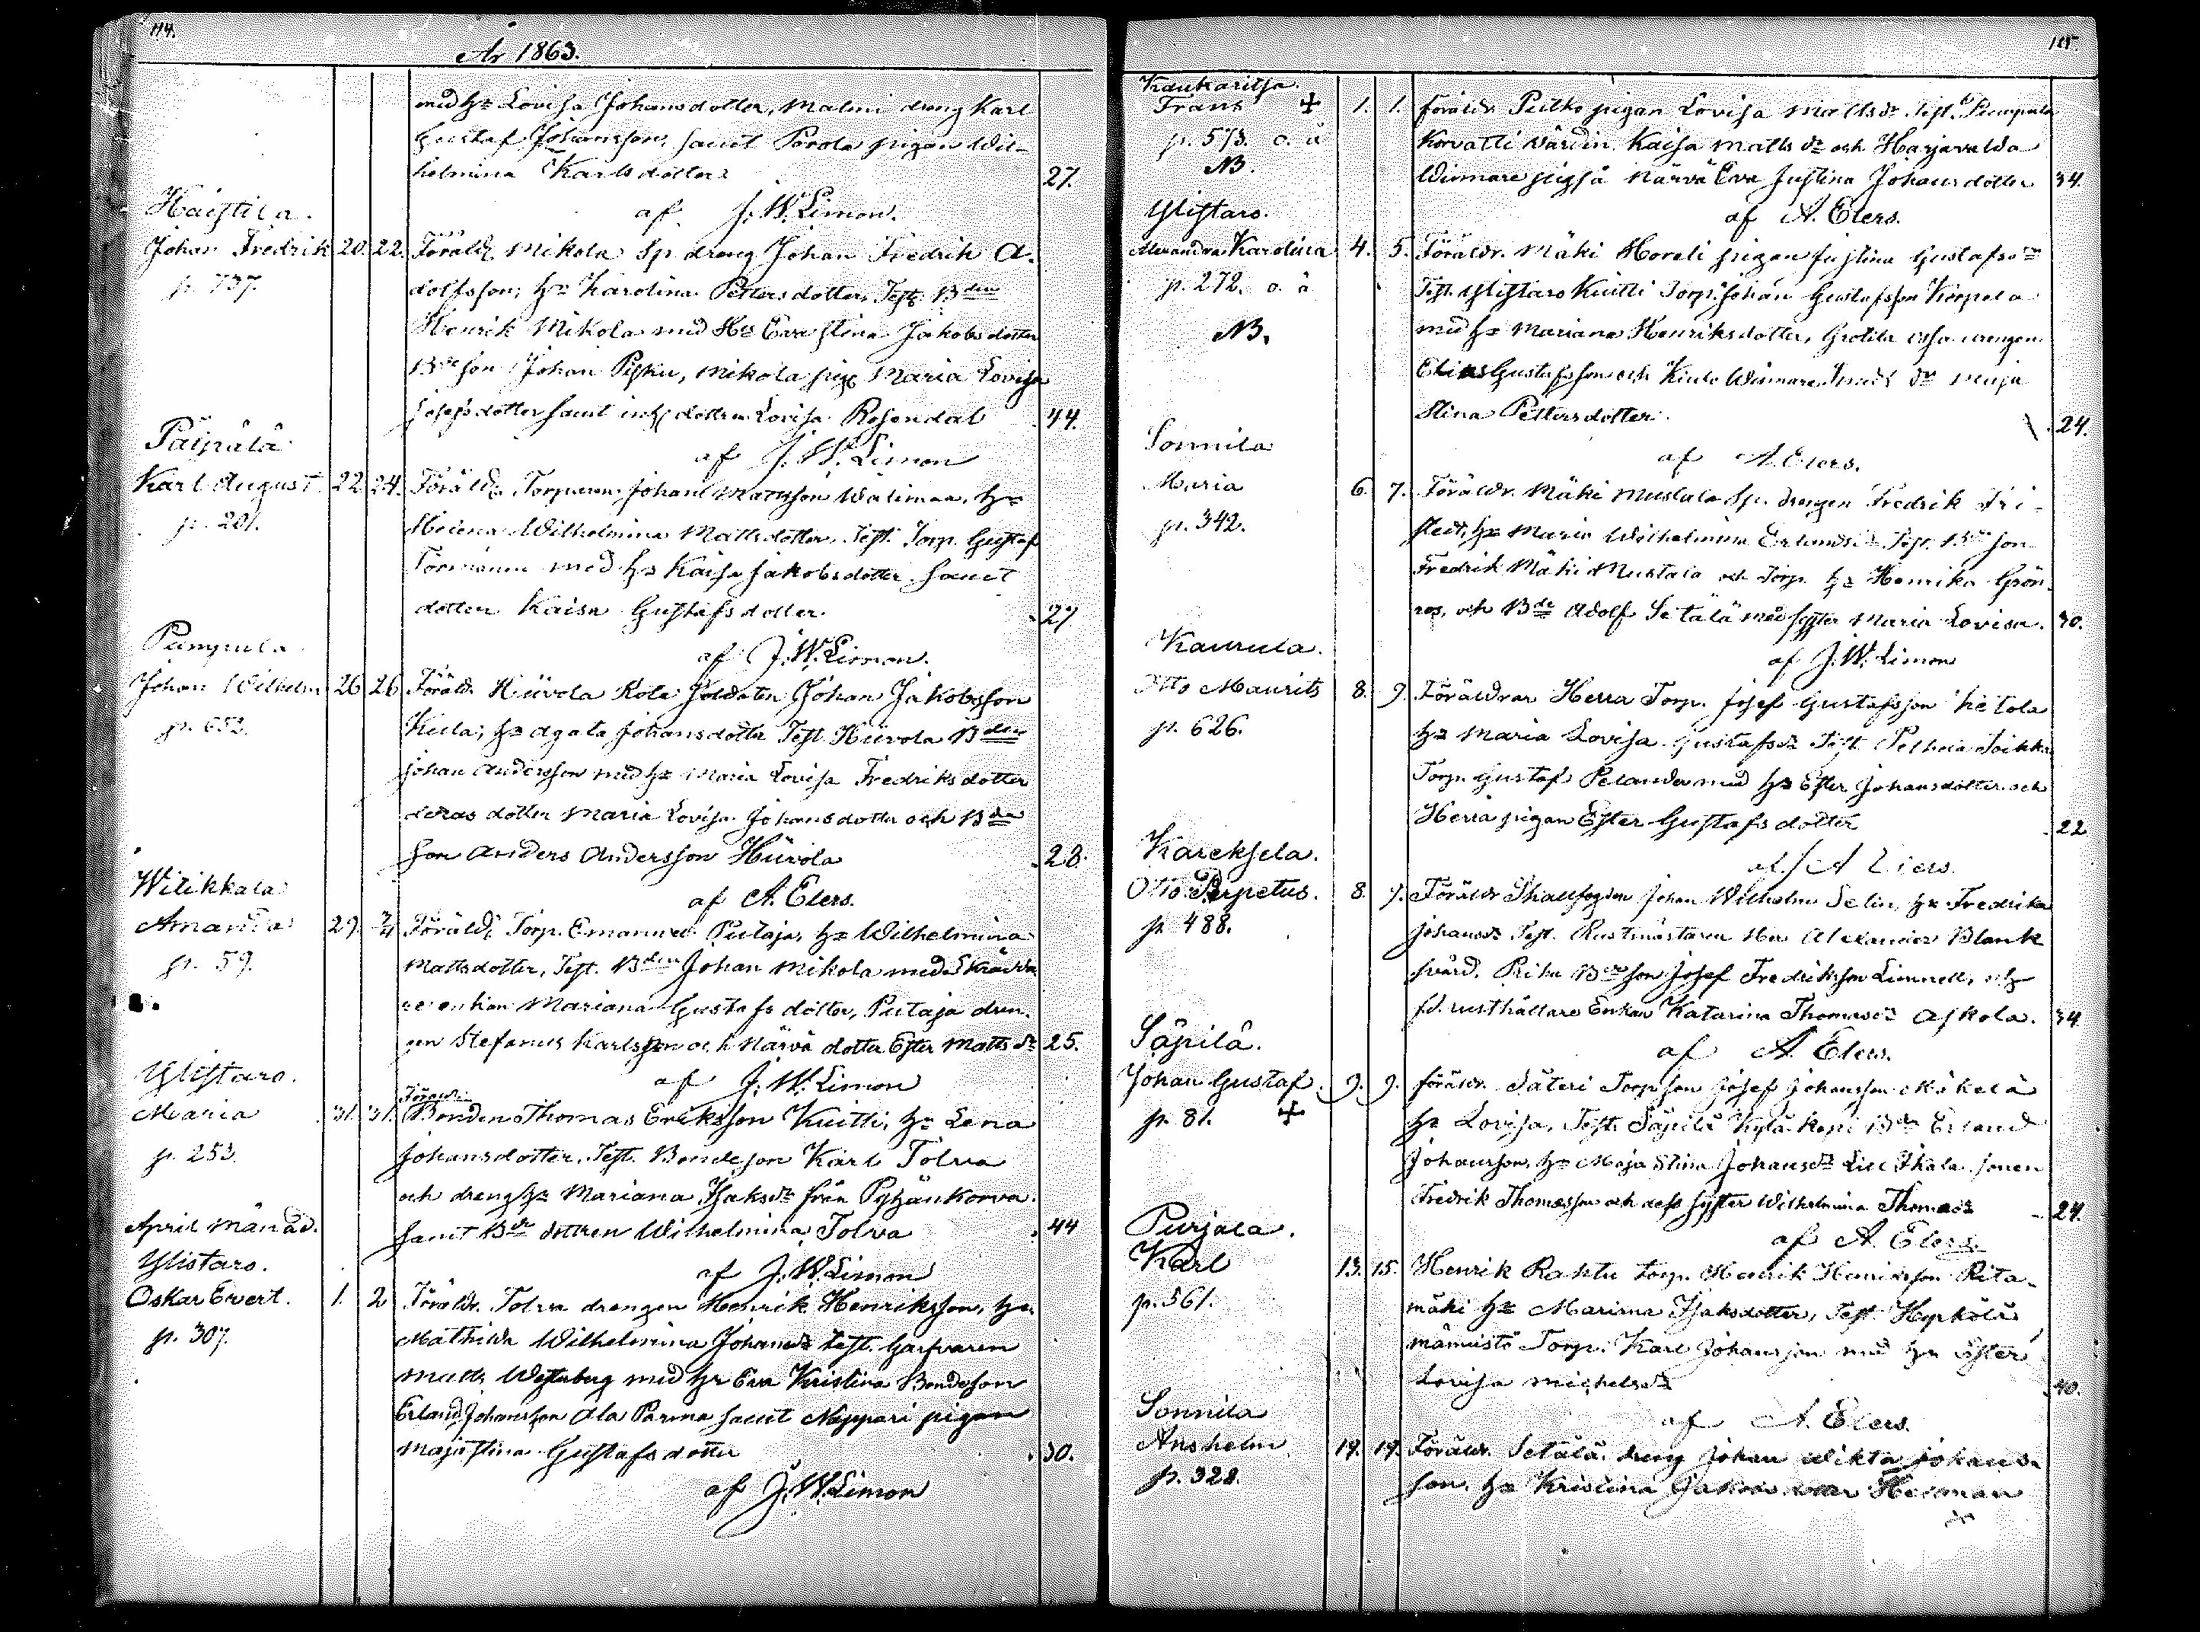 114.
År 1863.
med h: Lovisa Johansdotter, Malmi dreng Karl
Gustaf Johansson, samt Porola pigan Wil-
helmina Karlsdotter. 27.
af J. W. Limon.
Haistila.
Johan Fredrik 20. 22. Föräld. Mikola Sp. dreng Johan Fredrik A-
p. 737. dolfsson; h: Karolina Pettersdotter, Test. Bden
Henrik Mikola med H: Eva Stina Jakobsdotter
Bde son Johan Pispu, Mikola pig. Maria Lovisa
Josefsdotter samt inh. dottren Lovisa Rosendal 44.
af J. W. Limon
Päipälä
Karl August 22 24. Föräld. Torparen Johan Mattsson Walimaa, h:
p. 201. Helena Wilhelmina Mattsdotter. Test. Torp. Gustaf
Törmänen med h: Kaisa Jakobsdotter samt
dotter Kaisa Gustafsdotter. 27
af J. W. Limon.
Pumpula
Johan Wilhelm 26 26 Föräld. Hiivola Rote Soldaten Johan Jakobsson
p. 652. Kula; h: Agata Johansdotter Test. Hiivola Bden
Johan Andersson med h: Maria Lovisa Fredriksdotter
deras dotter Maria Lovisa Johansdotter och Bde
son Anders Andersson Hiivola 28.
af A. Elers.
Witikkala
Amanda 29. 2/4 Föräld. Torp. Emanuel Putaja, h: Wilhelmina
p. 59. Mattsdotter, Test. Bden Johan Mikola med Skrädda
re enkan Mariana Gustafsdotter, Putaja dren-
gen Stefanus Karlsson och Närvä dotter Ester Matts dr 25.
af J. W. Limon
Ylistaro.
Föräldr.
Maria 31. 31. Bonden Thomas Eriksson Kuitti, h: Lena
p. 253. Johansdotter. Test. Bondeson Karl Tolva
och dreng h: Mariana Isaksdr från Pyhänkorva.
samt Bde dottren Wilhelmina Tolva 44
af J. W. Limon
April månad.
Ylistaro.
Oskar Evert. 1. 2 Föräldr. Tolva drengen Henrik Henriksson, h:
p. 307. Mathilda Wilhelmina Johansdr test. Garfvaren
Matts Westerberg med h: Eva Kristina Bondeson
Erland Johansson Ala Parma samt Näppäri pigan
Maja Stina Gustafsdotter 30.
af J. W. Limon
115.
Kaukaritsa.
Frans + 1. 1. föräldr. Putko pigan Lovisa Mattsdr. Test. Pumpula
p. 573. o. ä Korvatti värdin. Kaisa Mattsdr och Harjavalda
NB. Winnare pigså Närvä Eva Justina Johansdotter 34.
af A. Elers.
Ylistaro.
Alexandra Karolina 4. 5. Föräldr. Mäki Horeli pigan Justina Gustafsdr
p. 272. o. ä Test. Ylistaro Kuitti Torp. Johan Gustafsson Korpela
NB. med h: Mariana Henriksdotter, Grotila drengen
Elias Gustafsson och Maja
Stina Pettersdotter. 24.
af A. Elers.
Sonnila
Maria 6. 7. Föräldr. Mäki Mustala Sp. drengen Fredrik Fri-
p. 342. stedt, h: Maria Wilhelmina Erlandsdr Test. Bde son
Fredrik Mäki Mustala och Torp. h: Henrika Grön-
ros, och Bde Adolf Setälä med syster Maria Lovisa. 30.
af J. W. Limon
Kaurula.
Otto Maurits 8. 9. Föräldrar Herra Torp. Josef Gustafsson Hetola
p. 626. h: Maria Lovisa Gustafsdr Test. Soikka
Torp. Gustaf Pelander med h: Ester Johansdotter och
Herra pigan Ester Gustafsdotter 22
af A Elers.
Kareksela.
Otto Perpetus. 8. 9. Föräldr Stallfogden Johan Wilhelm Selin, h: Fredrika
p. 488. Johansdr Test. Rustmästaren Herr Alexander Blank
svärd. Prihu Bde son Josef Fredriksson Limnell, och
fd. rusthållare Enkan Katarina Thomasdr Askola. 34.
af A. Elers.
Säpilä.
Johan Gustaf. 9. 9. föräldr. Säteri Torp son Josef Johansson Mäkelä
p. 81. + h: Lovisa, Test. Säpilä Kylä Bde Erland
Johansson, h: Maja Stina Johansdr Lill sonen
Fredrik Thomasson och dess syster Wilhelmina Thomasdr 24.
af A. Elers.
Purjala.
Karl 13. 15. Henrik Rahtu torp. Henrik Henriksson Rita-
p. 561. mäki h: Mariana Isaksdotter, Test. Hyrkölä
männistö Torp. Karl Johansson med h: Ester
Lovisa Michelsdr 40.
af A. Elers.
Sonnila
Ansholm 19. 19. Föräldr. Setälä dreng Johan Wikta Johans-
p. 328. son, h: Kristina Herman